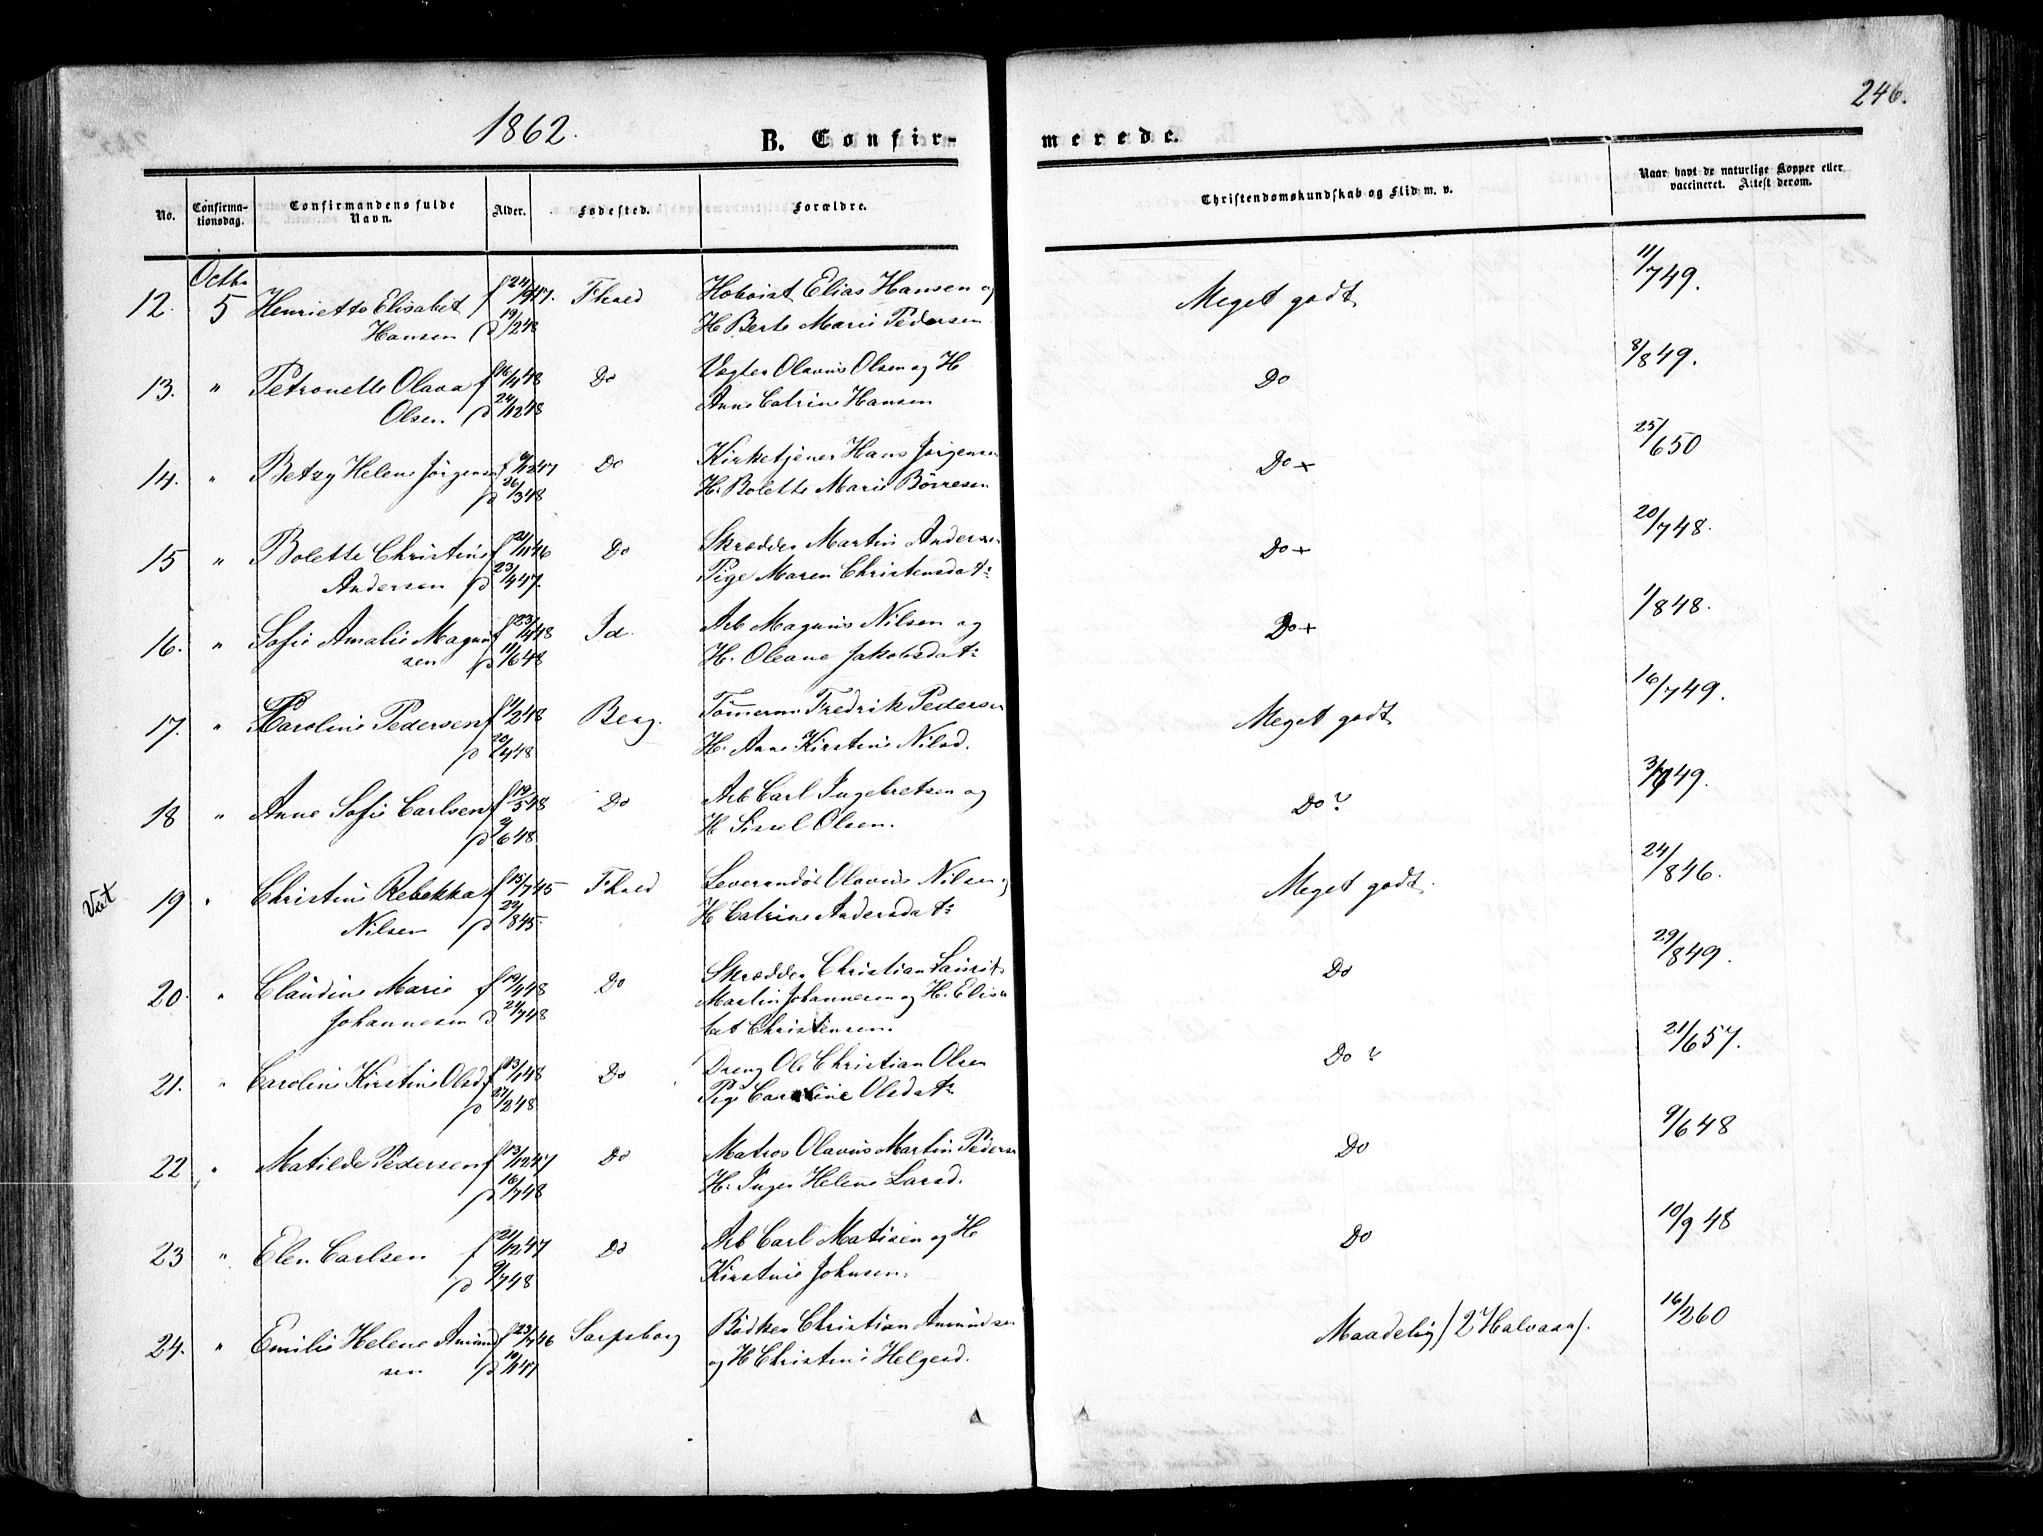 246.
1862.
B. Confir-
merede.
No.
Confirma-
tionsdag.
Confirmandens fulde
Navn.
Alder.
Fødested.
Forældre.
Christendomskundskab og Flid m. v.
Naar havt de naturlige Kopper eller
vaccineret. Attest derom.
Octb.
12. 5 Henriette Elisabet f 24/9 47. Fhald Hoboist Elias Hansen og Meget godt 11/7 49.
Hansen d 19/2 48 H Berte Marie Pedersen
13. " Petronelle Olava f 16/11 48 Do Vægter Olavus Olsen og H Do 8/8 49.
Olsen d 24/12 48 Anne Catrine Hansen
14. " Betzy Helene Jørgensen f 9/12 47 Do Kirketjener Hans Jørgensen Do + 25/6 50
d 26/3 48 H. Bolette Marie Børresen
15 " Bolette Christine f 21/11 46 Do Skrædder Martin Andersen Do + 20/7 48.
Andersen d 23/4 47. Pige Maren Christensdatr
16. " Sofie Amalie Magnu f 23/4 48 Id. Arb Magnus Nilsen og Do + 1/8 48.
sen d 11/6 48 H. Oleane Jakobsdatr
17. " Karoline Pedersen f 1/2 48 Berg. Tømmerm Fredrik Pedersen Meget godt 16/7 49.
d 20/4 48 H. Anne Kirstine Nilsd.
18 " Anne Sofie Carlsen f 19/5 48 Do Arb Carl Ingebretsen og Do ? 49.
d 9/6 48 H Sissel Olsen.
19 " Christine Rebekka f 15/7 45 Fhald Leverandør Olavus Nilsen og Meget godt. 24/8 46.
Nilsen d 22/8 45. H Catrine Andersdatr
20. " Claudine Marie f 19/4 48 Do Skrædder Christian Laurits Do 29/8 49.
Johannesen d 24/7 48 Martin Johannesen og H. Elisa
bet Christensen.
21. " Caroline Kirstine Olsd f 13/1 48 Do Dreng Ole Christian Olsen Do ? 21/6 57.
d 27/2 48 Pige Caroline Olsdatr
22 " Matilde Pedersen f 13/12 47 Do Matros Olavus Martin Pedersen Do 9/6 48
d 16/7 48 H. Inger Helene Larsd.
23 " Elen Carlsen f 21/12 47 Do Arb Carl Matisen og H Do 10/9 48
d 9/7 48 Kirstine Johnsen.
24. " Emilie Helene Amund f 23/7 46 Sarpsborg Bødker Christian Amundsen Maadelig /2 Halvaar/. 16/2 60
sen d 10/1 47 og H Christine Helgesd.